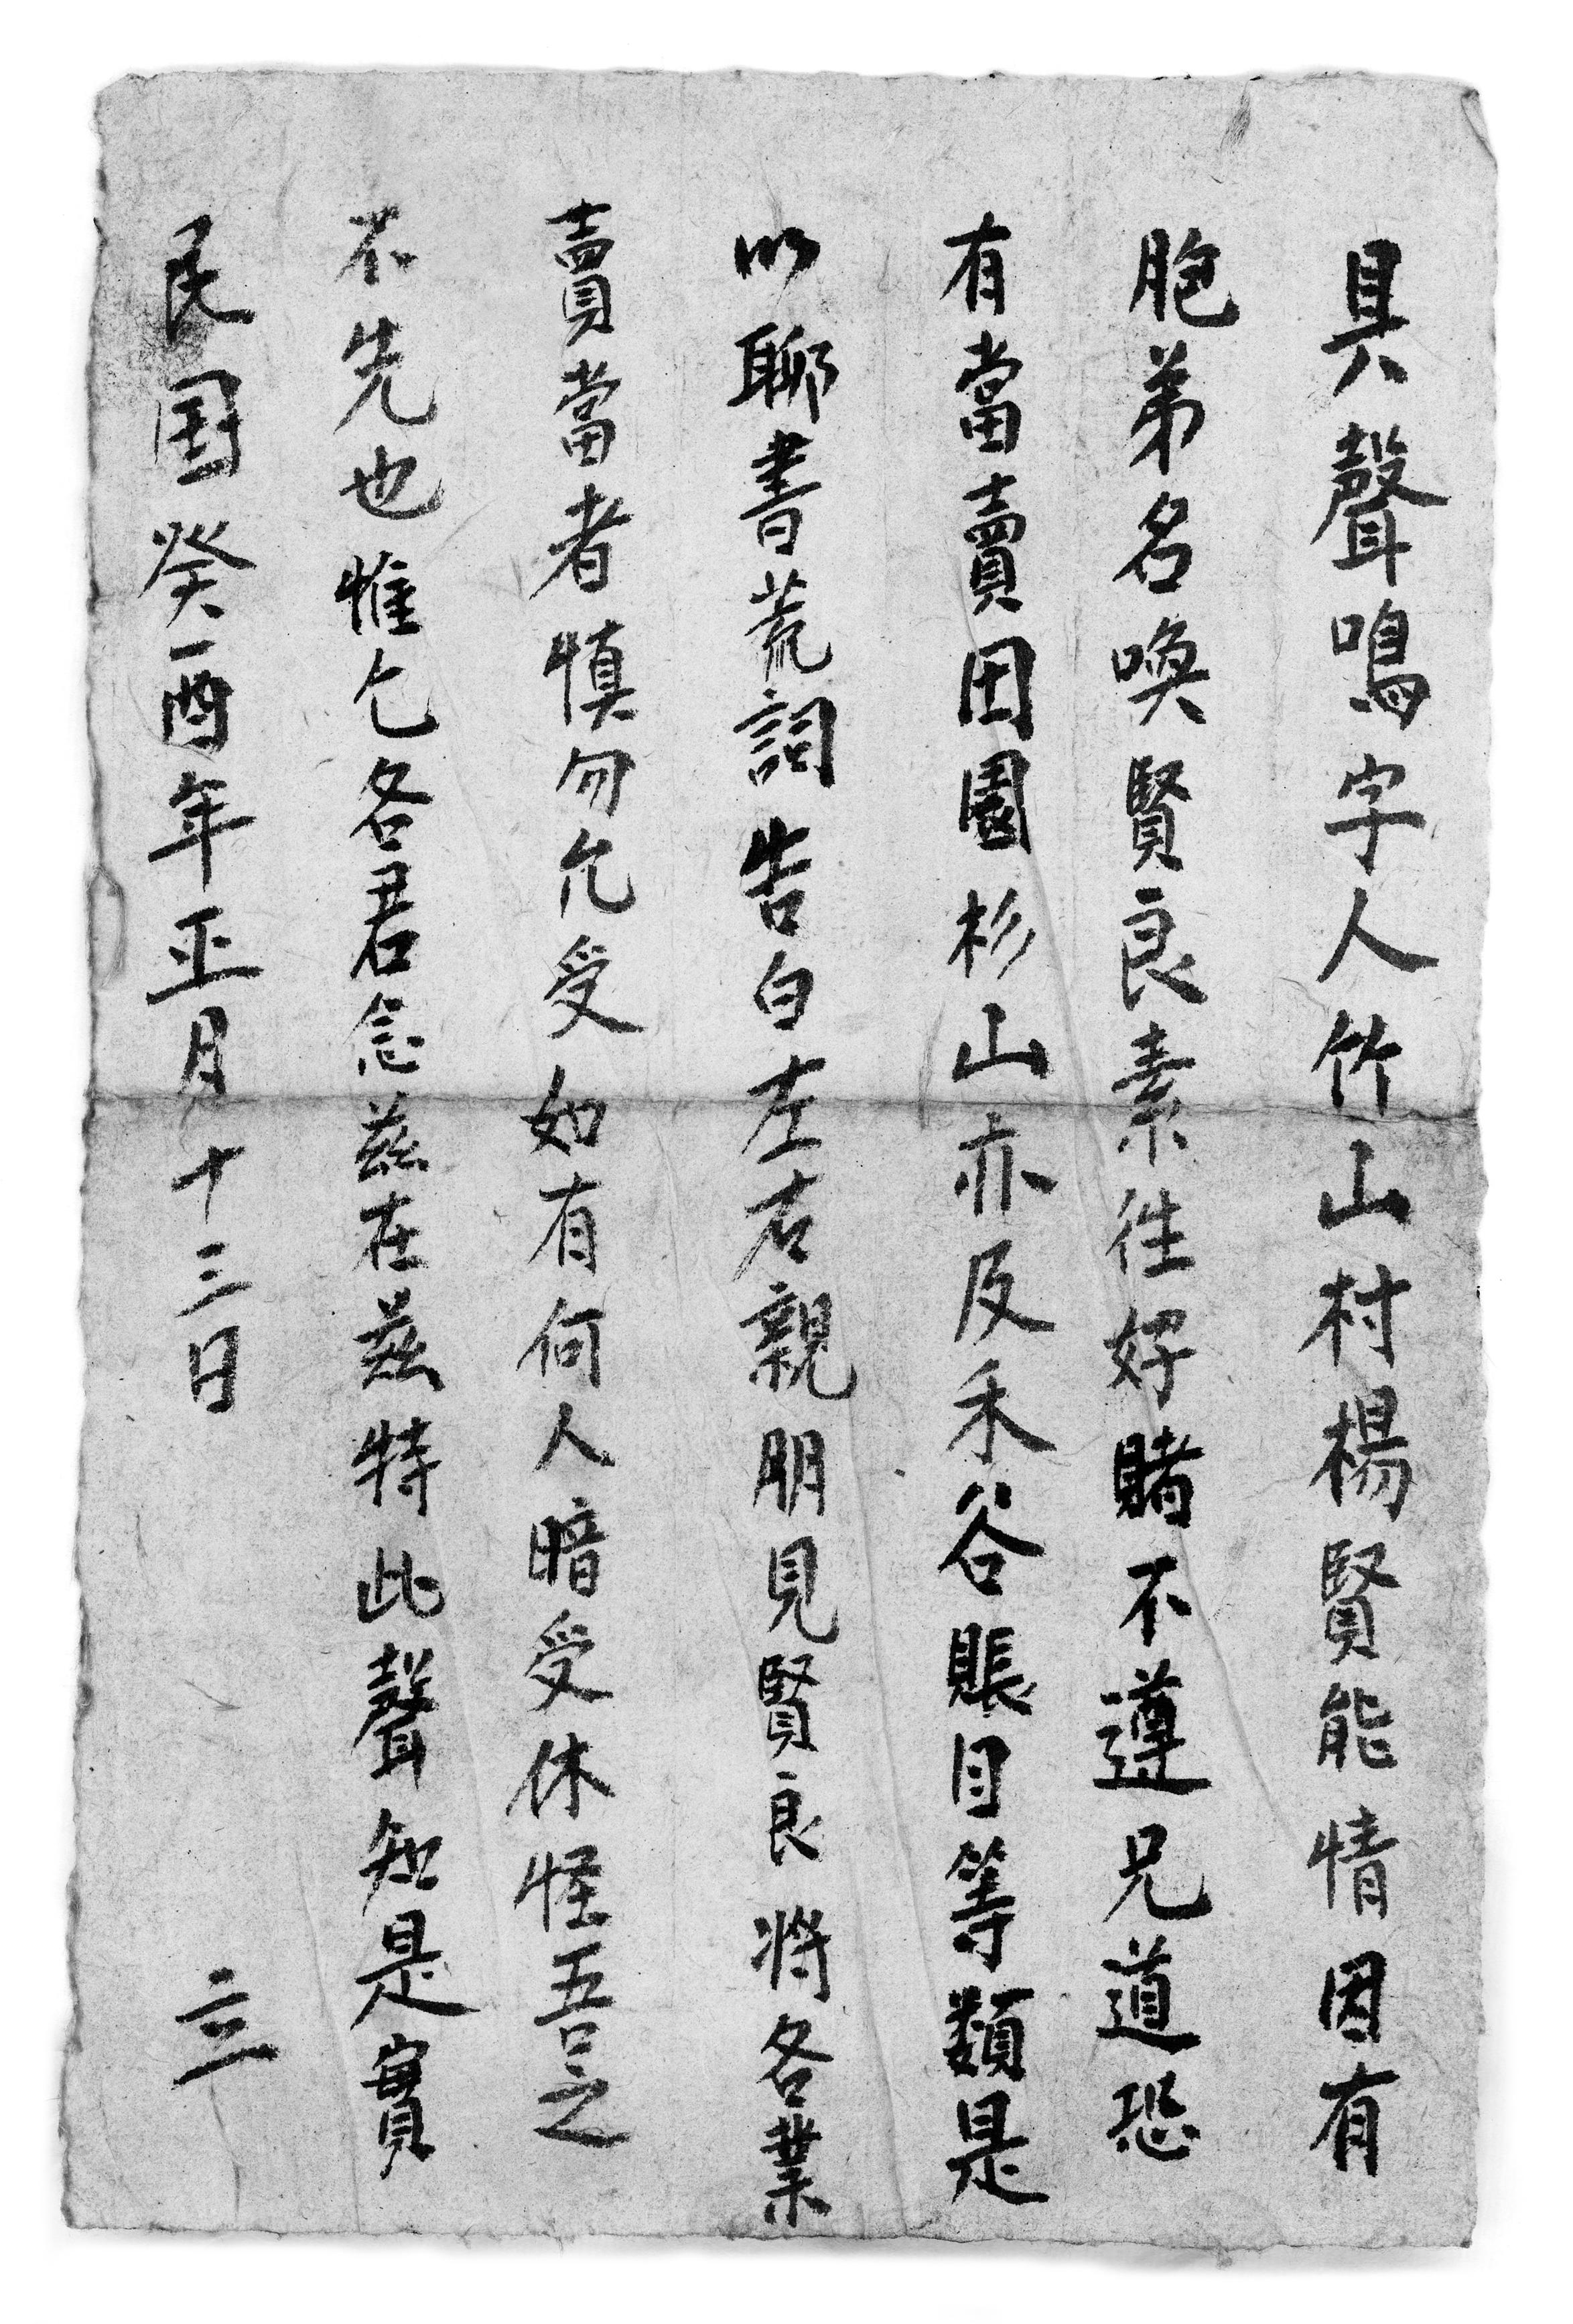 具聲鳴字人竹山村楊賢能情因有
胞弟名喚賢良素往好賭不遵兄道恐
有當賣田園杉山亦及禾谷賬目等類是
以聊書荒詞告白左右親朋見賢良將各業
賣當者慎勿允受如有何人暗受休怪吾之
不先也惟乞各君念兹在兹特此聲知是實
民国癸酉年正月十三日 立